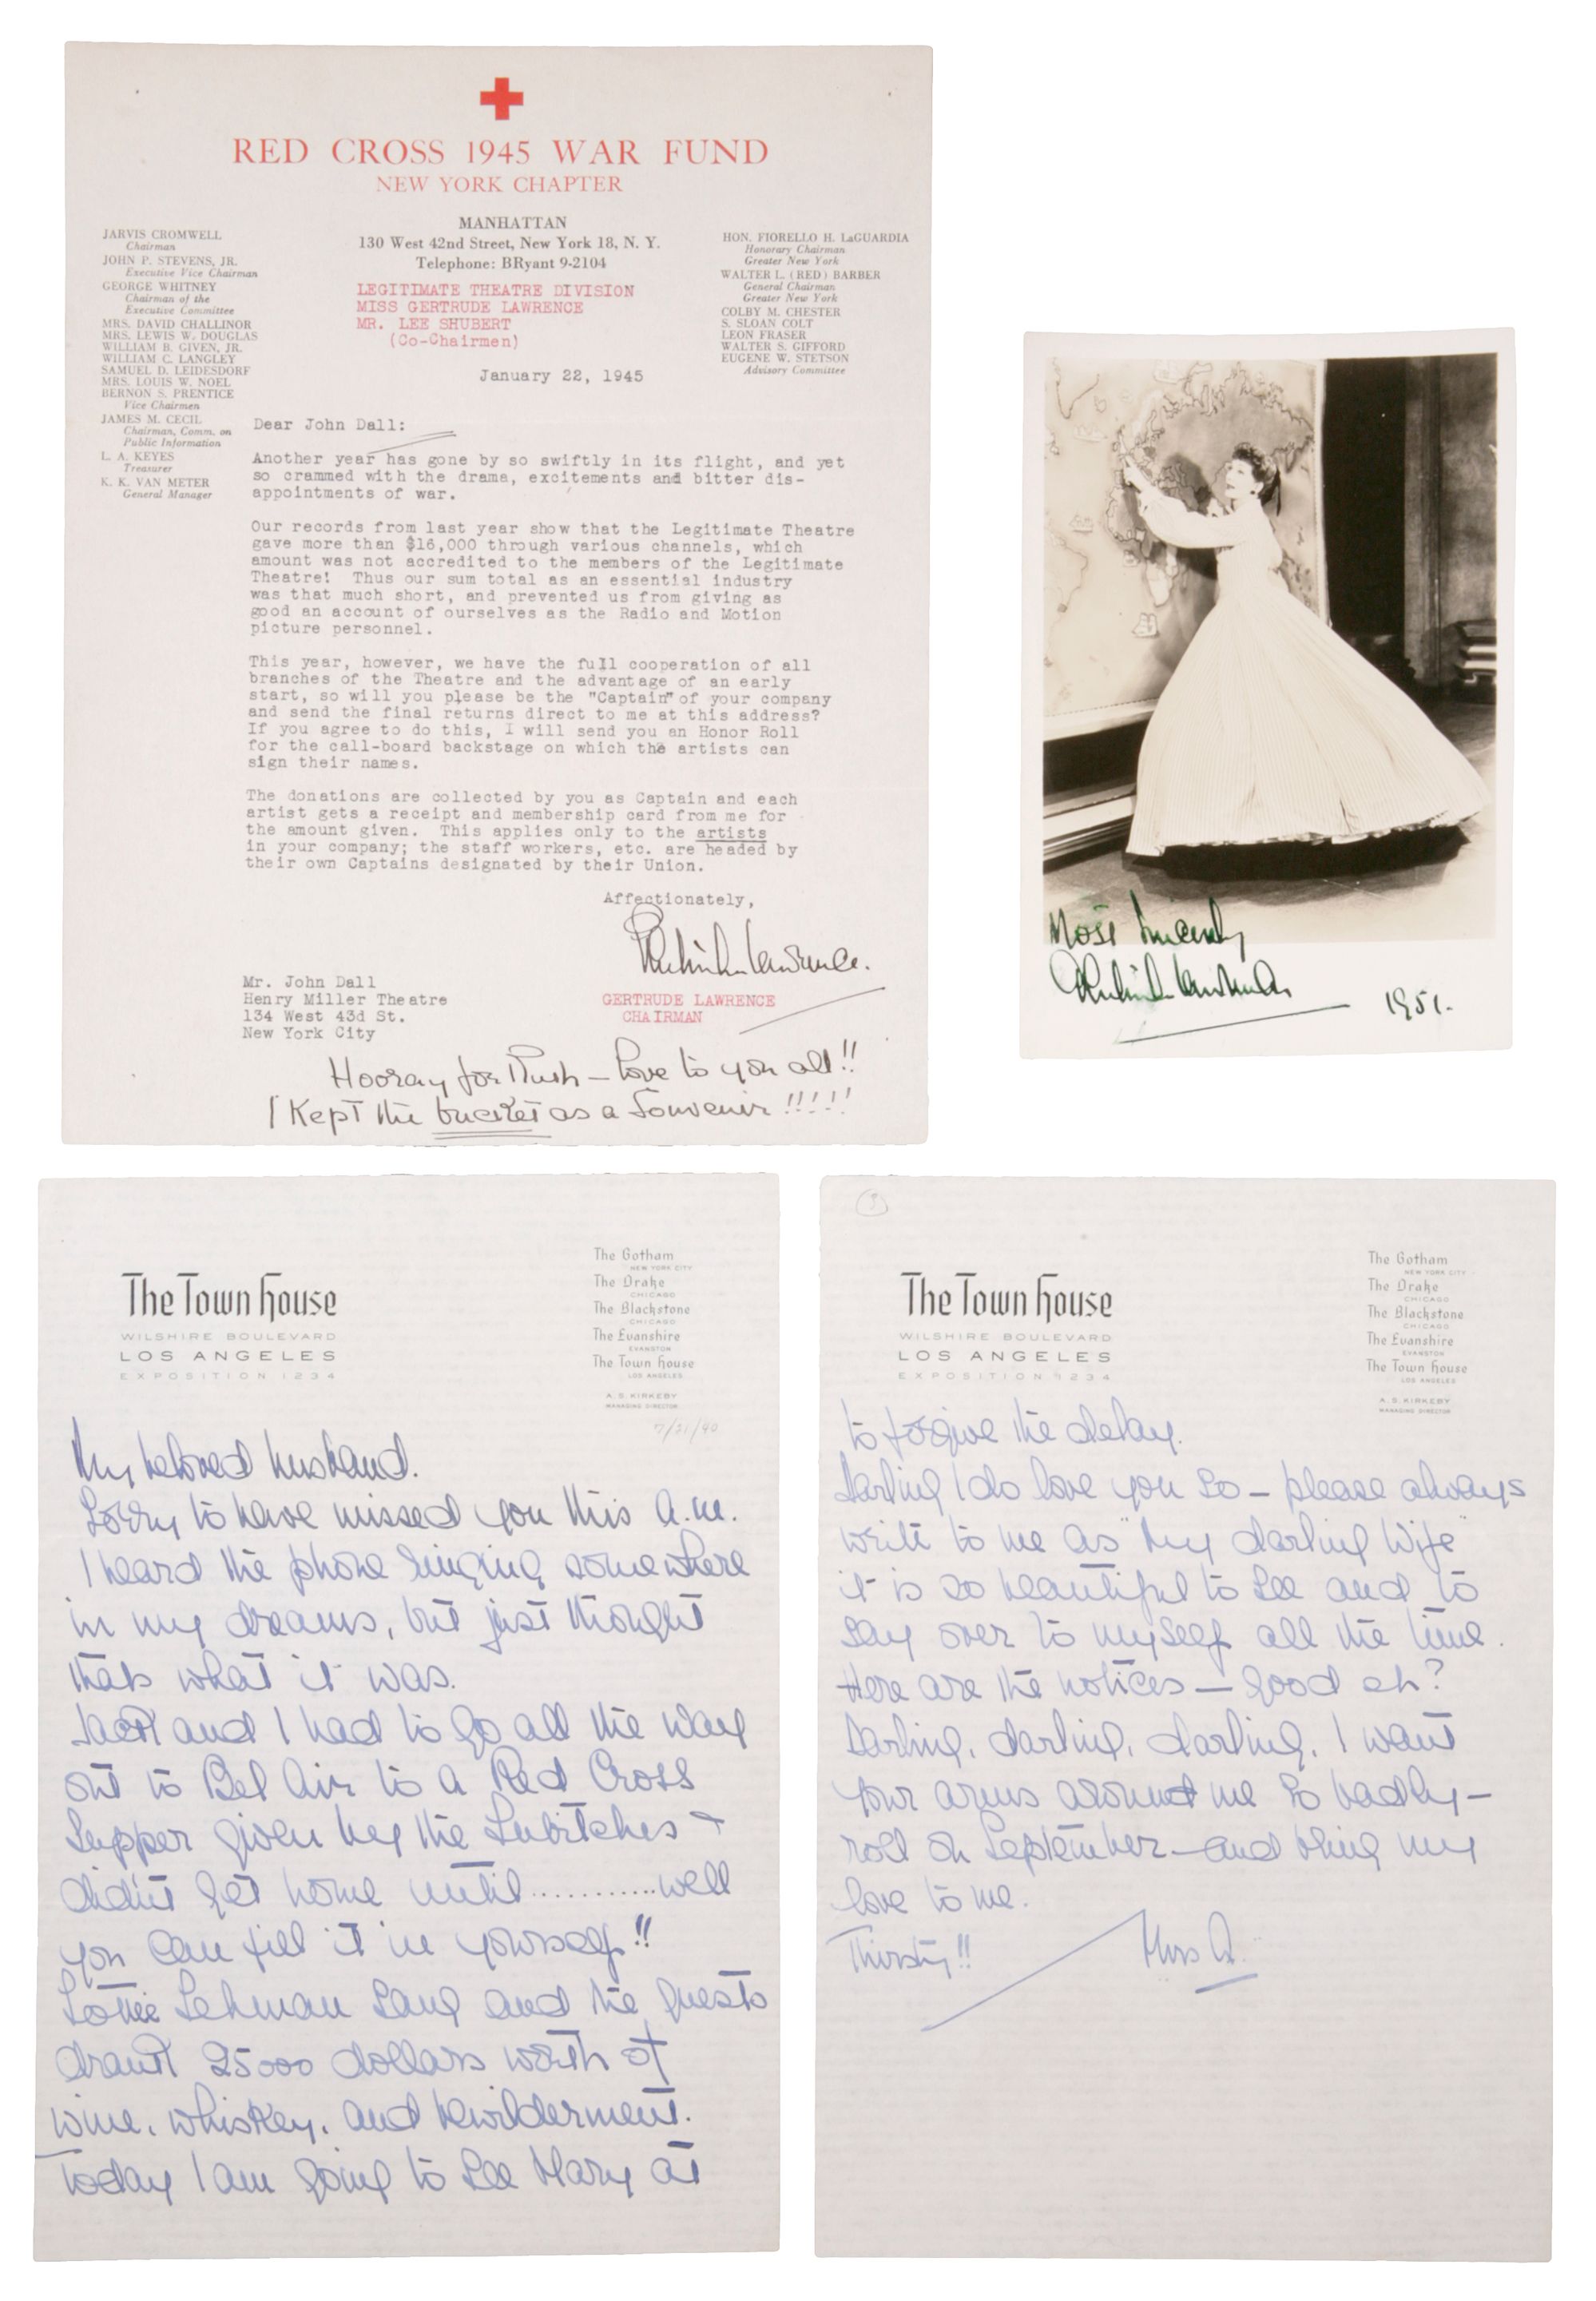 RED CROSS 1945 WAR FUND
NEW YORK CHAPTER
MANHATTAN
130 West 42nd Street, New York 18, N. Y.
Telephone: BRyant 9-2104
JARVIS CROMWELL
Chairman
JOHN P. STEVENS, JR.
Executive Vice Chairman
GEORGE WHITNEY
Chairman of the
Executive Committee
MRS. DAVID CHALLINOR
MRS. LEWIS W. DOUGLAS
WILLIAM B. GIVEN, JR.
WILLIAM C. LANGLEY
SAMUEL D. LEIDESDORF
MRS. LOUIS W. NOEL
BERNON S. PRENTICE
Vice Chairmen
JAMES M. CECIL
Chairman, Comm. on
Public Information
L. A. KEYES
Treasurer
K. K. VAN METER
General Manager
HON. FIORELLO H. LaGUARDIA
Honorary Chairman
Greater New York
WALTER L. (RED) BARBER
General Chairman
Greater New York
COLBY M. CHESTER
S. SLOAN COLT
LEON FRASER
WALTER S. GIFFORD
EUGENE W. STETSON
Advisory Committee
LEGITIMATE THEATRE DIVISION
MISS GERTRUDE LAWRENCE
MR. LEE SHUBERT
(Co-Chairmen)
January 22, 1945
Dear John Dall:
Another year has gone by so swiftly in its flight, and yet
so crammed with the drama, excitements and bitter dis-
appointments of war.
Our records from last year show that the Legitimate Theatre
gave more than $16,000 through various channels, which
amount was not accredited to the members of the Legitimate
Theatre! Thus our sum total as an essential industry
was that much short, and prevented us from giving as
good an account of ourselves as the Radio and Motion
picture personnel.
This year, however, we have the full cooperation of all
branches of the Theatre and the advantage of an early
start, so will you please be the "Captain" of your company
and send the final returns direct to me at this address?
If you agree to do this, I will send you an Honor Roll
for the call-board backstage on which the artists can
sign their names.
The donations are collected by you as Captain and each
artist gets a receipt and membership card from me for
the amount given. This applies only to the artists
in your company; the staff workers, etc. are headed by
their own Captains designated by their Union.
Affectionately,
Gertrude Lawrence.
GERTRUDE LAWRENCE
CHAIRMAN
Mr. John Dall
Henry Miller Theatre
134 West 43d St.
New York City
Hooray for Rush – love to you all!!
I Kept the bucket as a Souvenir !!!!!
Most Sincerely
Gertrude Lawrence
1951.
The Town House
WILSHIRE BOULEVARD
LOS ANGELES
EXPOSITION 1234
The Gotham
NEW YORK CITY
The Drake
CHICAGO
The Blackstone
CHICAGO
The Evanshire
EVANSTON
The Town House
LOS ANGELES
A. S. KIRKEBY
MANAGING DIRECTOR
7/21/40
My beloved husband.
Sorry to have missed you this a.m.
I heard the phone ringing somewhere
in my dreams, but just thought
thats what it was.
Jack and I had to go all the way
out to Bel Air to a Red Cross
Supper given by the Lubitches &
didnt get home until............well
you can fill it in yourself!!
Lottie Lehman Sang and the guests
drank 25000 dollars worth of
wine, whiskey, and bewilderment.
Today I am going to see Mary at
3
The Town House
WILSHIRE BOULEVARD
LOS ANGELES
EXPOSITION 1234
The Gotham
NEW YORK CITY
The Drake
CHICAGO
The Blackstone
CHICAGO
The Evanshire
EVANSTON
The Town House
LOS ANGELES
A. S. KIRKEBY
MANAGING DIRECTOR
to forgive the delay.
Darling I do love you so – please always
write to me as "My darling Wife"
it is so beautiful to see and to
say over to myself all the time.
Here are the notices – good eh?
Darling, darling, darling, I want
your arms around me so badly –
roll on September – and bring my
love to me.
Thirsty!!
Mrs A.